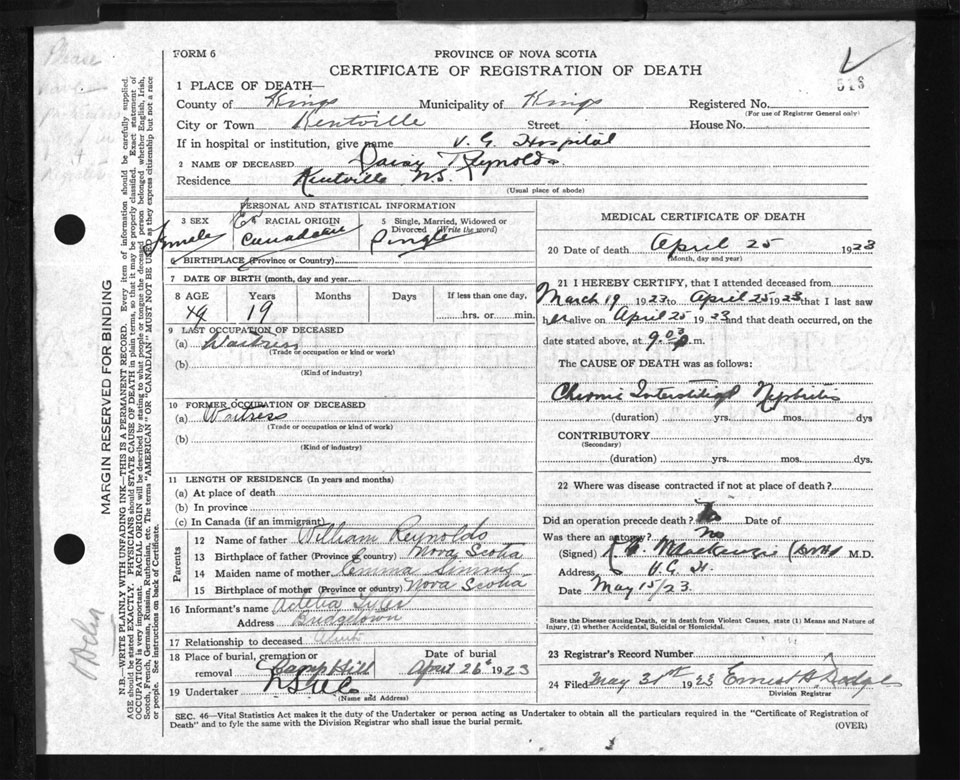 FORM 6
PROVINCE OF NOVA SCOTIA
CERTIFICATE OF REGISTRATION OF DEATH
Please
518
1 PLACE OF DEATH—
County of Kings Municipality of Kings Registered No.
(For use of Registrar General only)
City or Town Kentville Street House No.
If in hospital or institution, give name V. G. Hospital
2 NAME OF DECEASED Reynolds
Residence Kentville N.S.
(Usual place of abode)
PERSONAL AND STATISTICAL INFORMATION
3 SEX Female
RACIAL ORIGIN Canadian
5 Single, Married, Widowed or Divorced (Write the word) Single
6 BIRTHPLACE (Province or Country)
7 DATE OF BIRTH (month, day and year)
8 AGE Years Months Days If less than one day,
19 hrs. or min.
9 LAST OCCUPATION OF DECEASED
(a) Waitress
(Trade or occupation or kind or work)
(b)
(Kind of industry)
10 FORMER OCCUPATION OF DECEASED
(a) Waitress
(Trade or occupation or kind of work)
(b)
(Kind of industry)
11 LENGTH OF RESIDENCE (In years and months)
(a) At place of death
(b) In province
(c) In Canada (if an immigrant)
Parents
12 Name of father William Reynolds
13 Birthplace of father (Province or country) Nova Scotia
14 Maiden name of mother Emma Simms
15 Birthplace of mother (Province or country) Nova Scotia
16 Informant's name
Address Bridgetown
17 Relationship to deceased
18 Place of burial, cremation or removal Camp Hill
Date of burial April 26 1923
19 Undertaker
(Name and Address)
MEDICAL CERTIFICATE OF DEATH
20 Date of death April 25 1923
(Month, day and year)
21 I HEREBY CERTIFY, that I attended deceased from
March 19 1923 to April 25 1923 that I last saw
her alive on April 25 1923 and that death occurred, on the
date stated above, at 9.03 p.m.
The CAUSE OF DEATH was as follows:
Chronic Interstitial Nephritis
(duration) yrs. mos. dys
CONTRIBUTORY
(Secondary)
(duration) yrs. mos. dys.
22 Where was disease contracted if not at place of death?
Did an operation precede death? No Date of
Was there an autopsy? No
(Signed) Mackenzie M.D.
Address V.G.H.
Date May 15/23.
State the Disease causing Death, or in death from Violent Causes, state (1) Means and Nature of
Injury, (2) whether Accidental, Suicidal or Homicidal.
23 Registrar's Record Number
24 Filed May 31st 1923 Ernest
Division Registrar
SEC. 46—Vital Statistics Act makes it the duty of the Undertaker or person acting as Undertaker to obtain all the particulars required in the "Certificate of Registration of
Death" and to fyle the same with the Division Registrar who shall issue the burial permit.
(OVER)
MARGIN RESERVED FOR BINDING
N.B.—WRITE PLAINLY WITH UNFADING INK—THIS IS A PERMANENT RECORD. Every item of information should be carefully supplied.
AGE should be stated EXACTLY. PHYSICIANS should STATE CAUSE OF DEATH in plain terms, so that it may be properly classified. Exact statement of
OCCUPATION is very important. RACIAL ORIGIN will be described by stating to what people or tongue the deceased person belonged whether English, Irish,
Scotch, French, German, Russian, Ruthenian, etc. The terms "AMERICAN" OR "CANADIAN" MUST NOT BE USED as they express citizenship but not a race
or people. See instructions on back of Certificate.